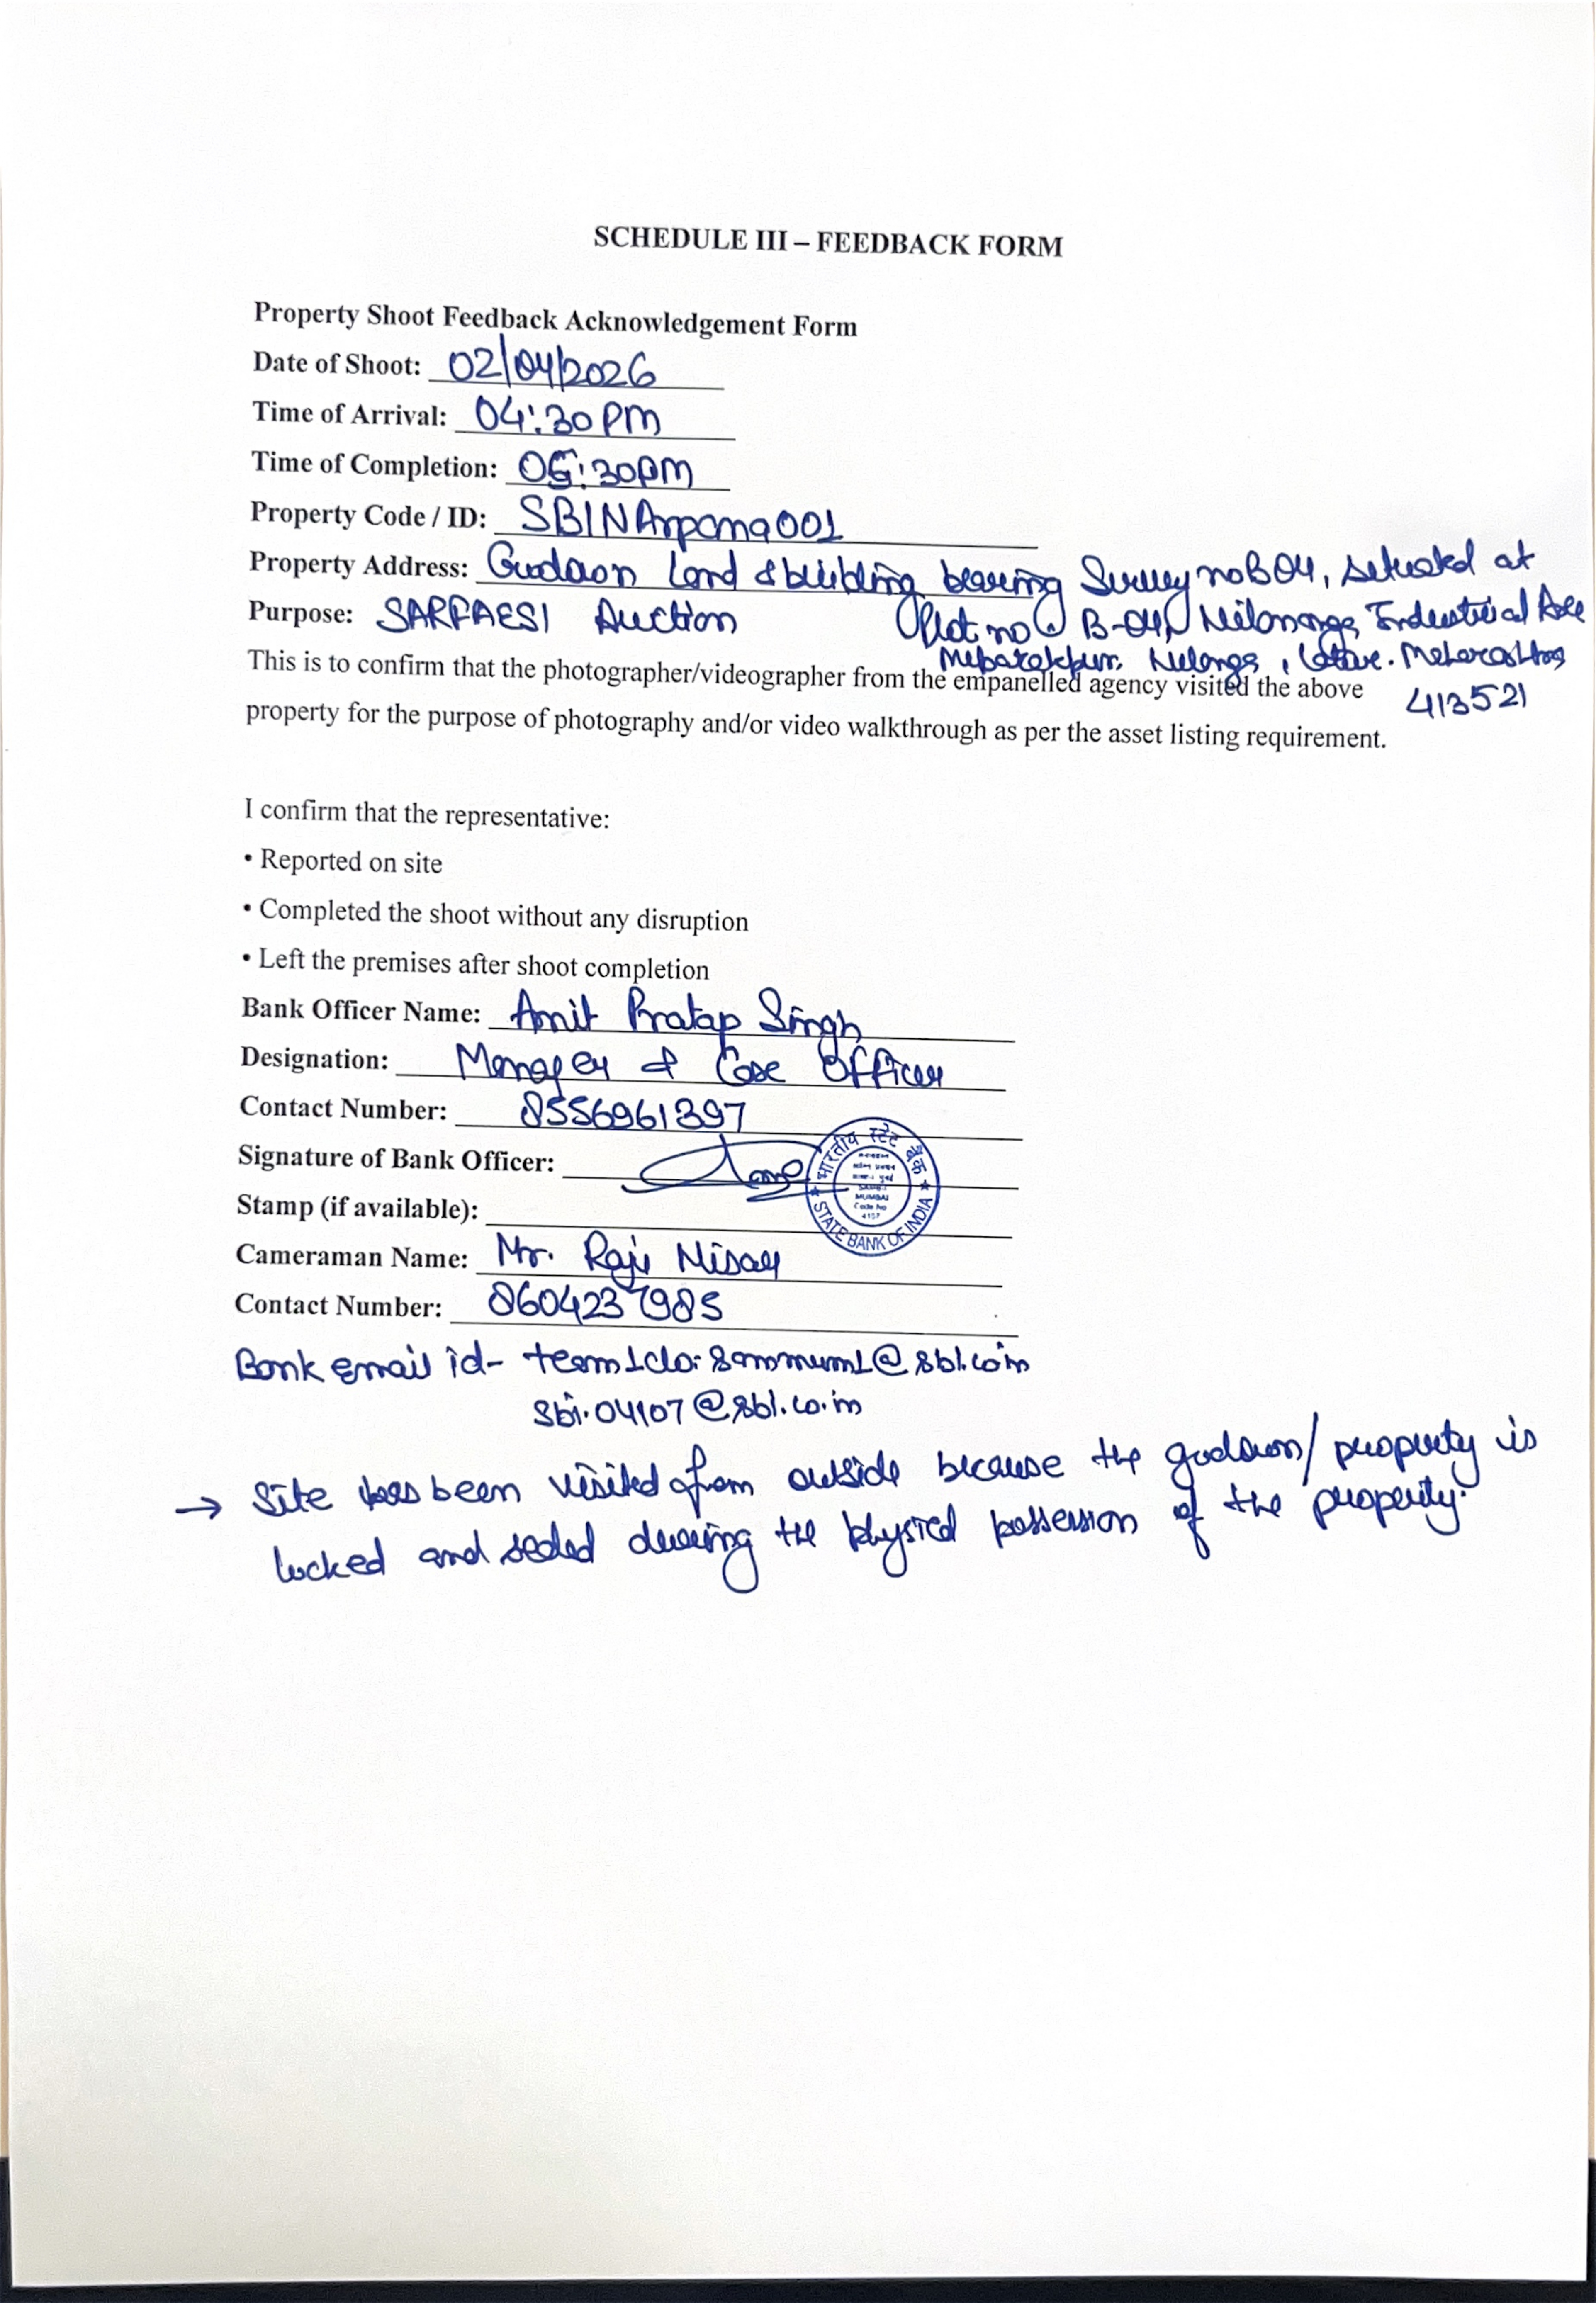 SCHEDULE III – FEEDBACK FORM
Property Shoot Feedback Acknowledgement Form
Date of Shoot: 02/04/2026
Time of Arrival: 04:30 PM
Time of Completion: 05:30PM
Property Code / ID: SBIN
Property Address: Godown Land & building bearing Survey no B 04, situated at
Plot no B-04, Industrial
Purpose: SARFAESI Auction
Maharashtra
413521
This is to confirm that the photographer/videographer from the empanelled agency visited the above
property for the purpose of photography and/or video walkthrough as per the asset listing requirement.
I confirm that the representative:
• Reported on site
• Completed the shoot without any disruption
• Left the premises after shoot completion
Bank Officer Name: Amit Pratap Singh
Designation: Manager & Case Officer
Contact Number: 8556961397
Signature of Bank Officer:
Stamp (if available):
भारतीय स्टेट बैंक
MUMBAI
Code No
STATE BANK OF INDIA
Cameraman Name: Mr. Raju
Contact Number: 8604237985
Bank email id-
sbi.04107@sbi.co.in
→ Site has been visited from outside because the godown/property is
locked and sealed during the physical possession of the property.